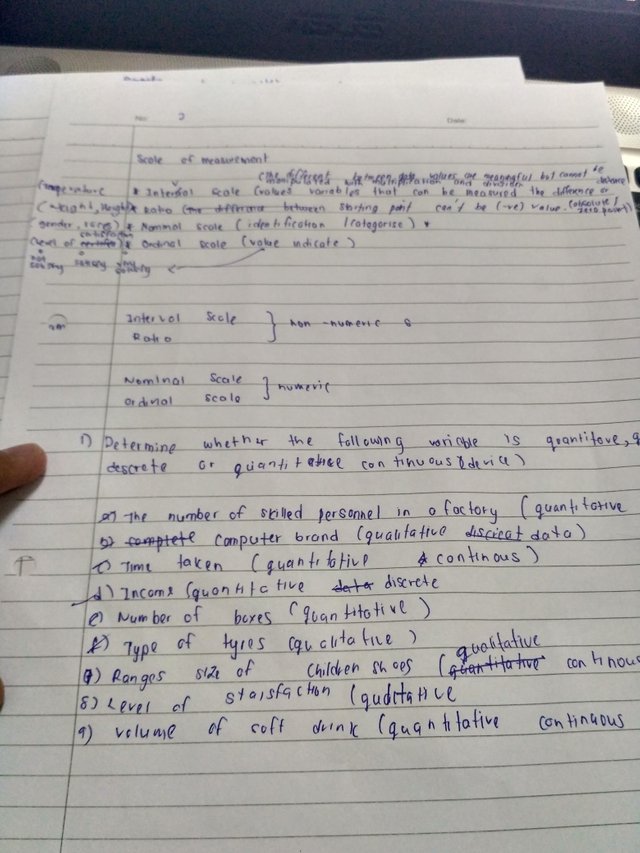 No: 2 Date:
Scale of measurement
(the different between data values are meaningful but cannot be
manipulated with multiplication and division
(temperature * Interval scale (values variables that can be measured the difference or
(weight, height) * Ratio (the difference between starting point can't be (-ve) value. (absolute /
zero point)
(gender, races) * Nominal scale (identification /categorise) *
satisfaction
(level of * Ordinal scale (value indicate)
not satisfy very
satisfy satisfy
Interval scale } non-numeric
Ratio
Nominal scale } numeric
ordinal scale
1) Determine whether the following variable is quantitave,
descrete or quantitative continuous (device)
a) The number of skilled personnel in a factory (quantitative
b) complete computer brand (qualitative discreat data)
c) Time taken (quantitative & continous)
d) Income (quantitative data discrete
e) Number of boxes (quantitative)
f) Type of tyres (qualitative)
qualitative
g) Ranges size of children shoes (quantitative continous
8) Level of staisfaction (qualitative
9) volume of soft drink (quantitative continuous